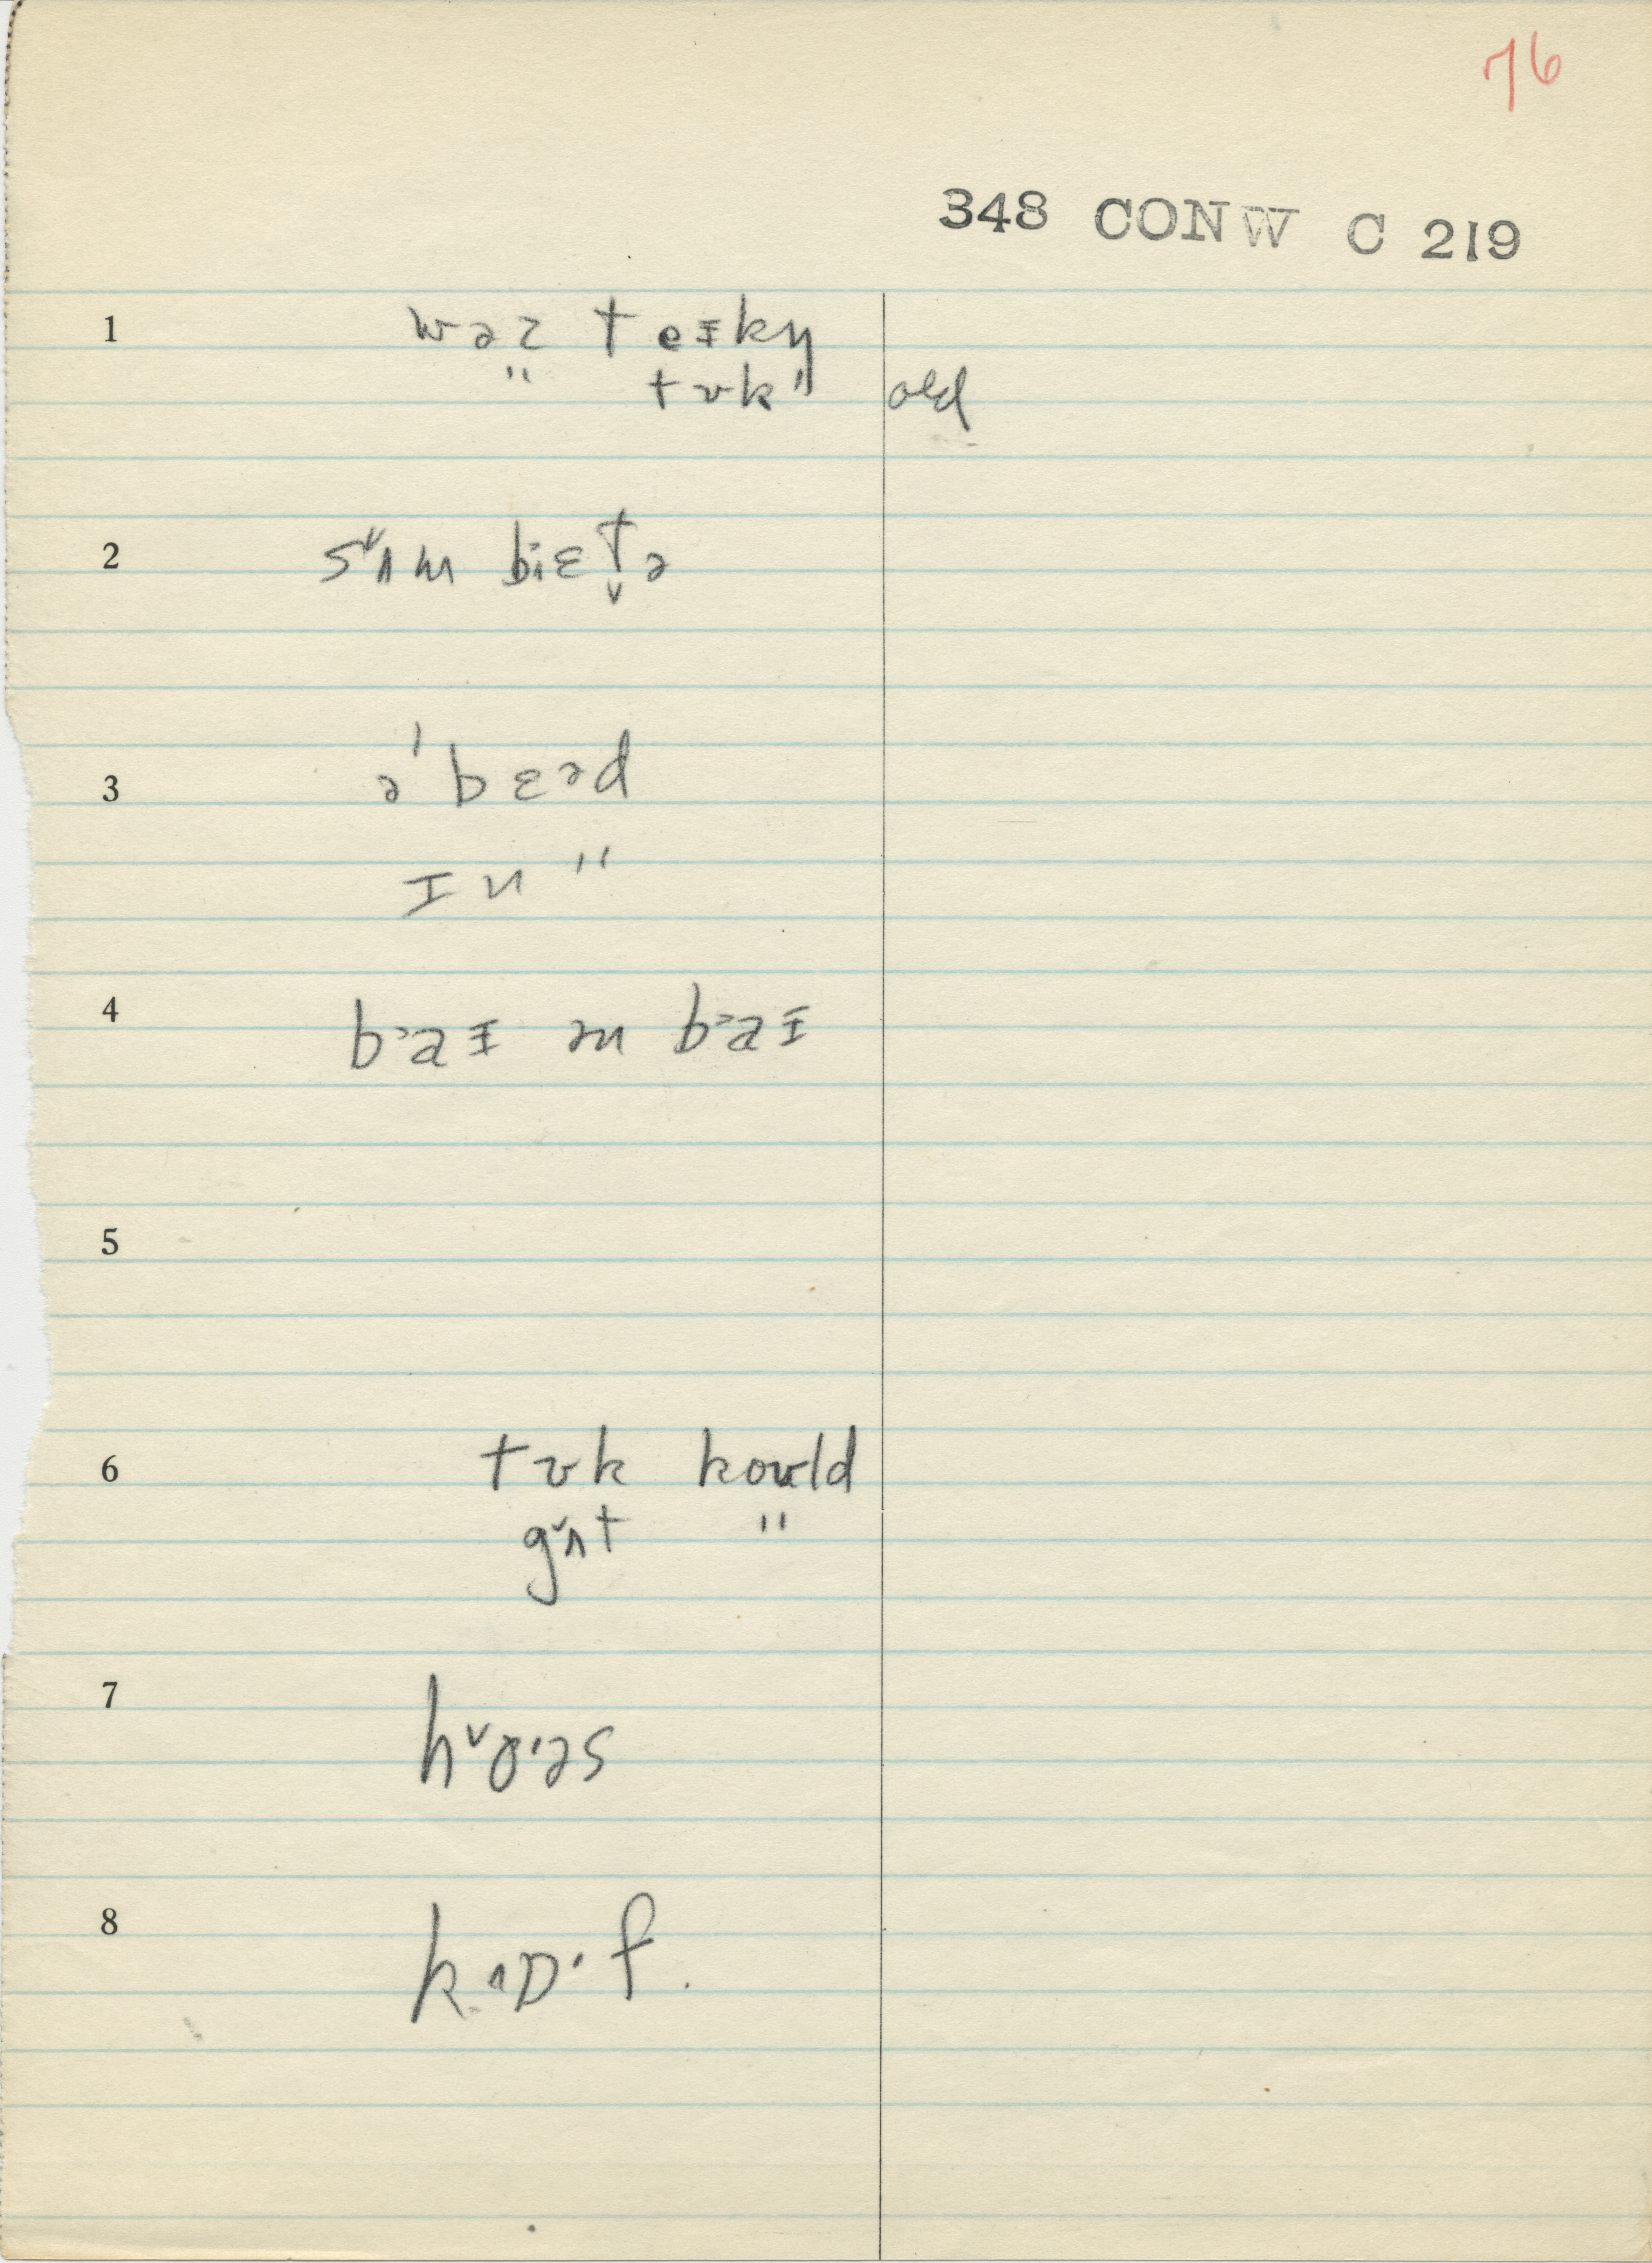 76
348 CONW C 219
1 wəz teɪkŋ
" tʊk " old
2 sˇʌm bi^ɛt̬ə
3 ə'bɛəd
ɪn "
4 b˃aɪ ən b˃aɪ
5
6 tʊk koʊld
gˇʌt "
7 hˇɔ·əs
8 k^ɒ·f.